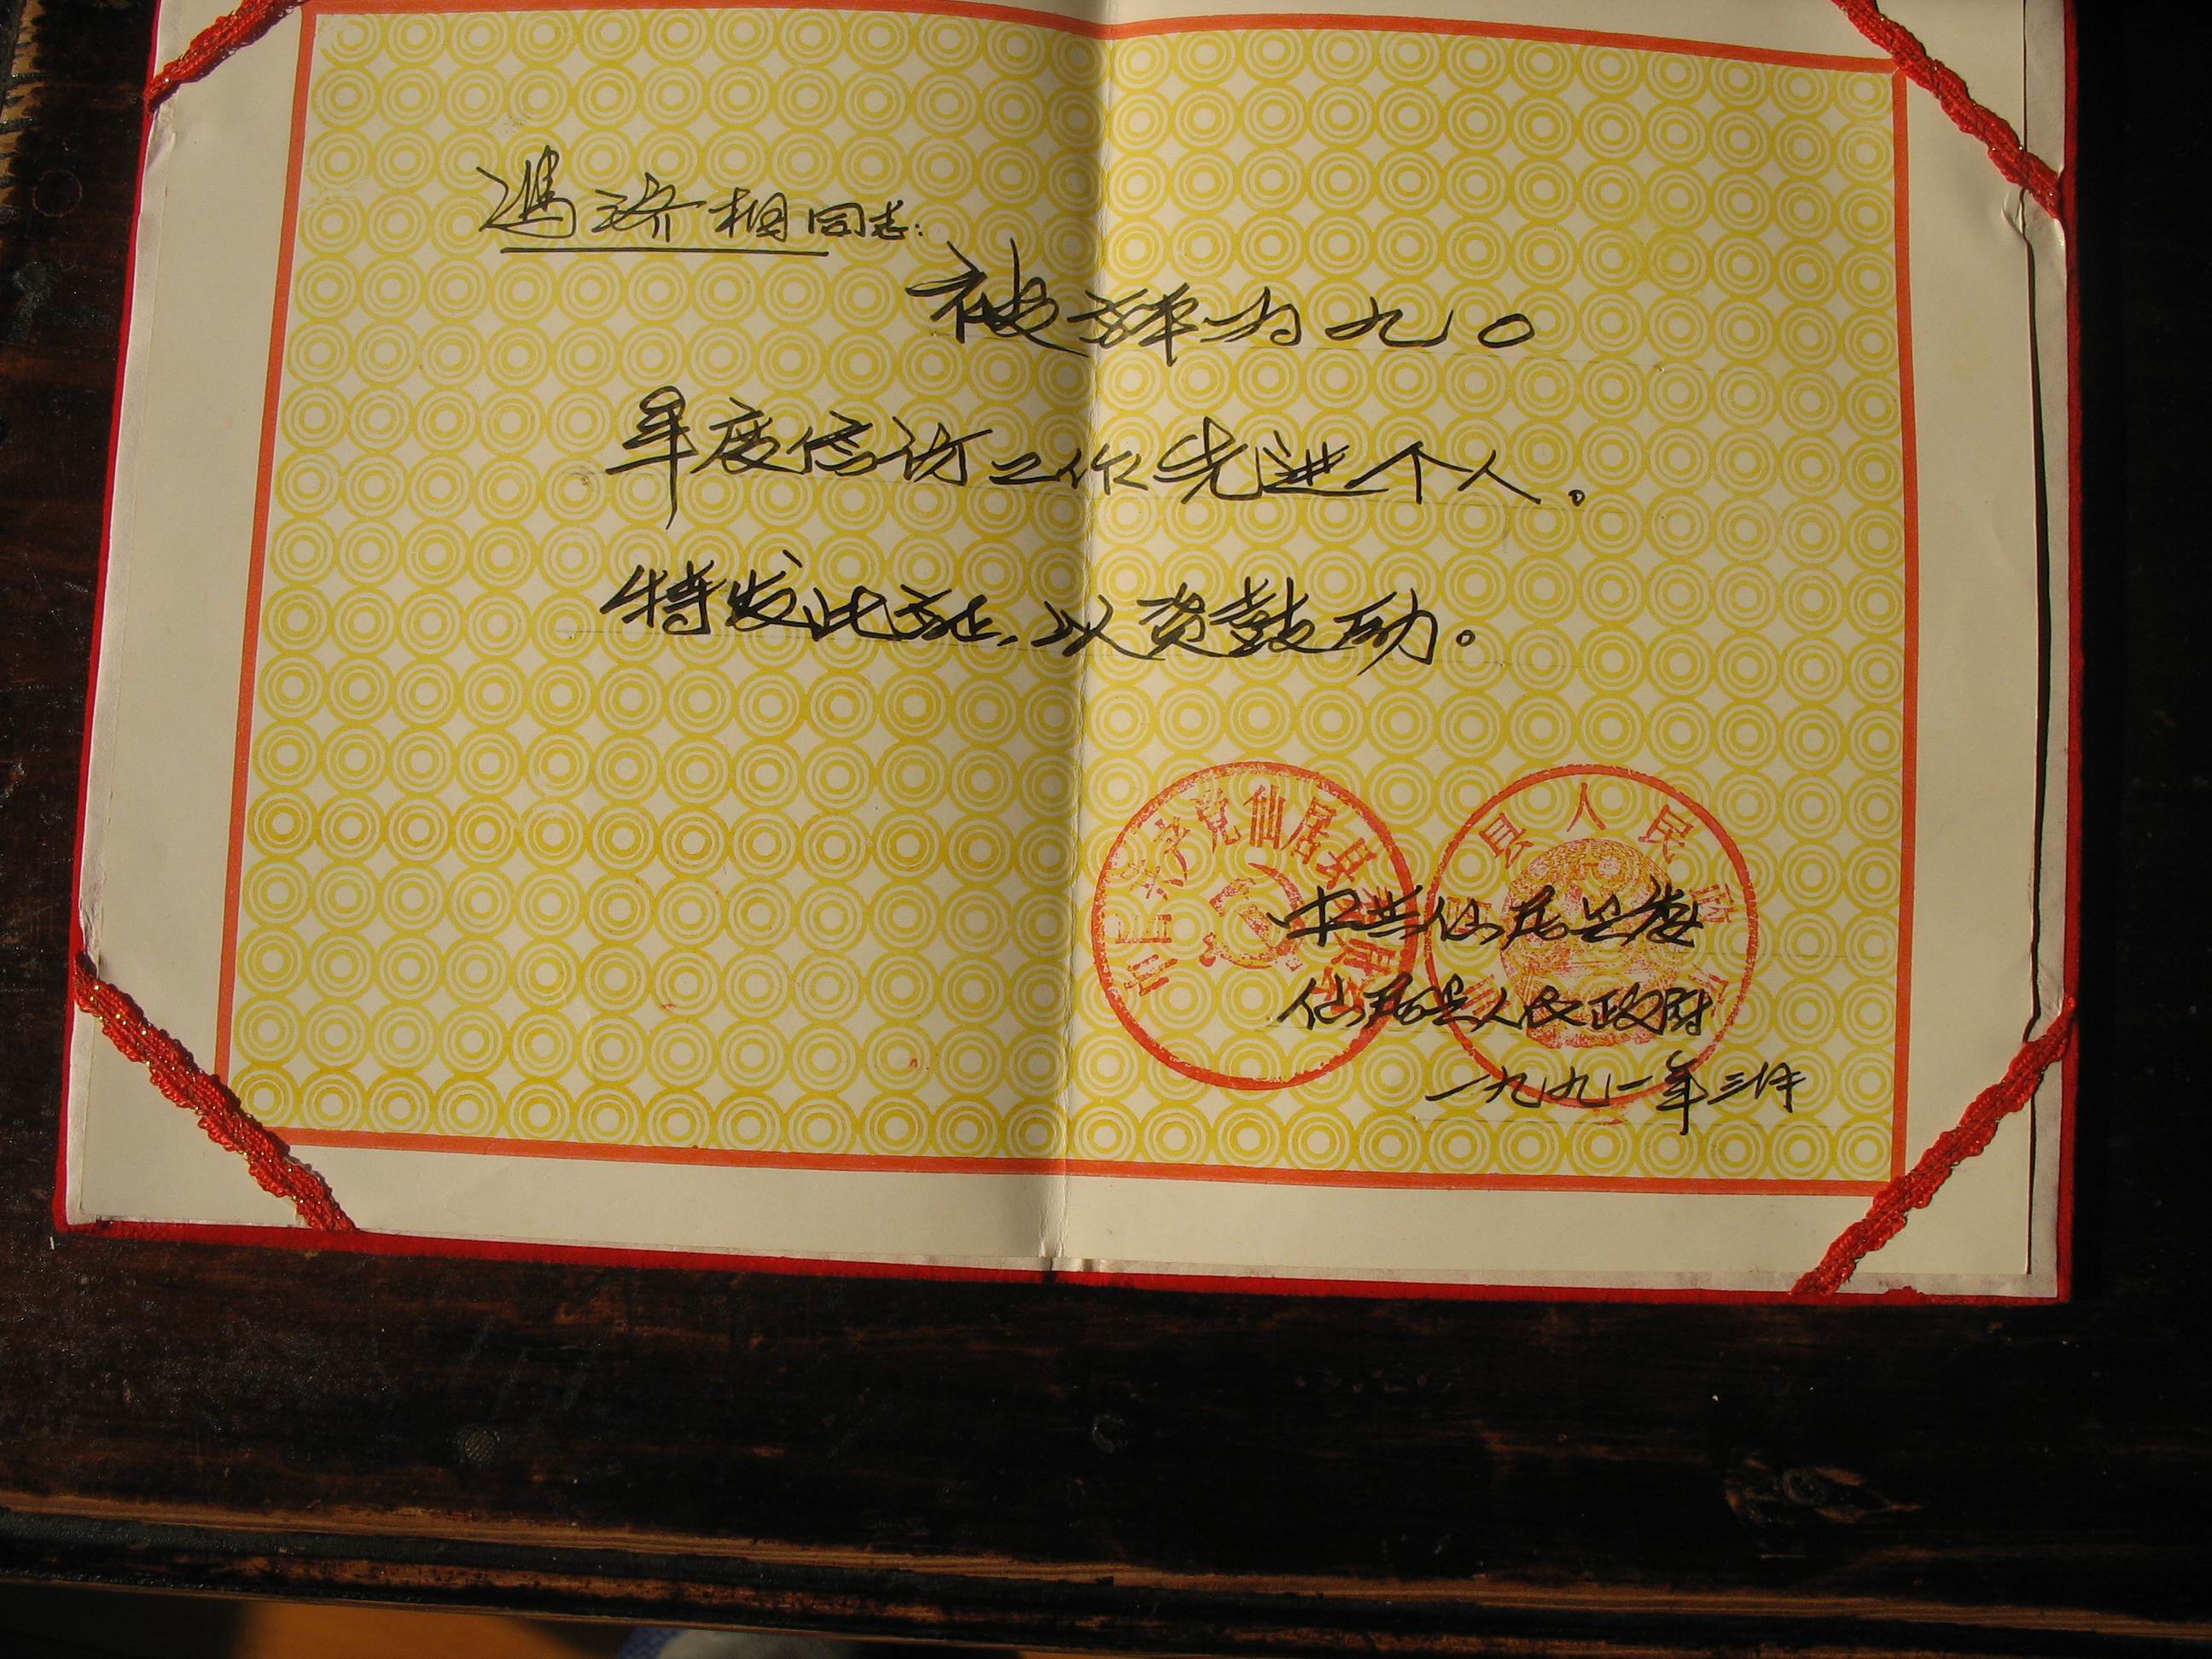 冯济相同志:
被评为九〇
年度信访工作先进个人。
特发此证,以资鼓励。
中国共产党仙居县委员会
县人民政府
中共仙居县委
仙居县人民政府
一九九一年三月